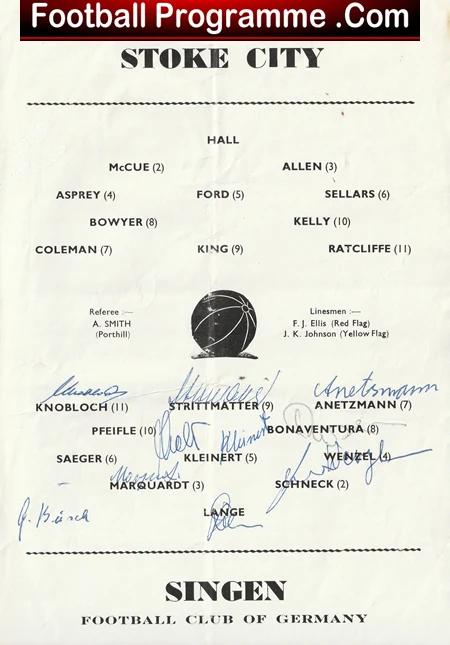 Football Programme .Com
STOKE CITY
HALL
McCUE (2) ALLEN (3)
ASPREY (4) FORD (5) SELLARS (6)
BOWYER (8) KELLY (10)
COLEMAN (7) KING (9) RATCLIFFE (11)
Referee :— Linesmen :—
A. SMITH F. J. Ellis (Red Flag)
(Porthill) J. K. Johnson (Yellow Flag)
Anetzmann
KNOBLOCH (11) STRITTMATTER (9) ANETZMANN (7)
PFEIFLE (10) Kleinert BONAVENTURA (8)
SAEGER (6) KLEINERT (5) WENZEL (4)
MARQUARDT (3) SCHNECK (2)
LANGE
SINGEN
FOOTBALL CLUB OF GERMANY